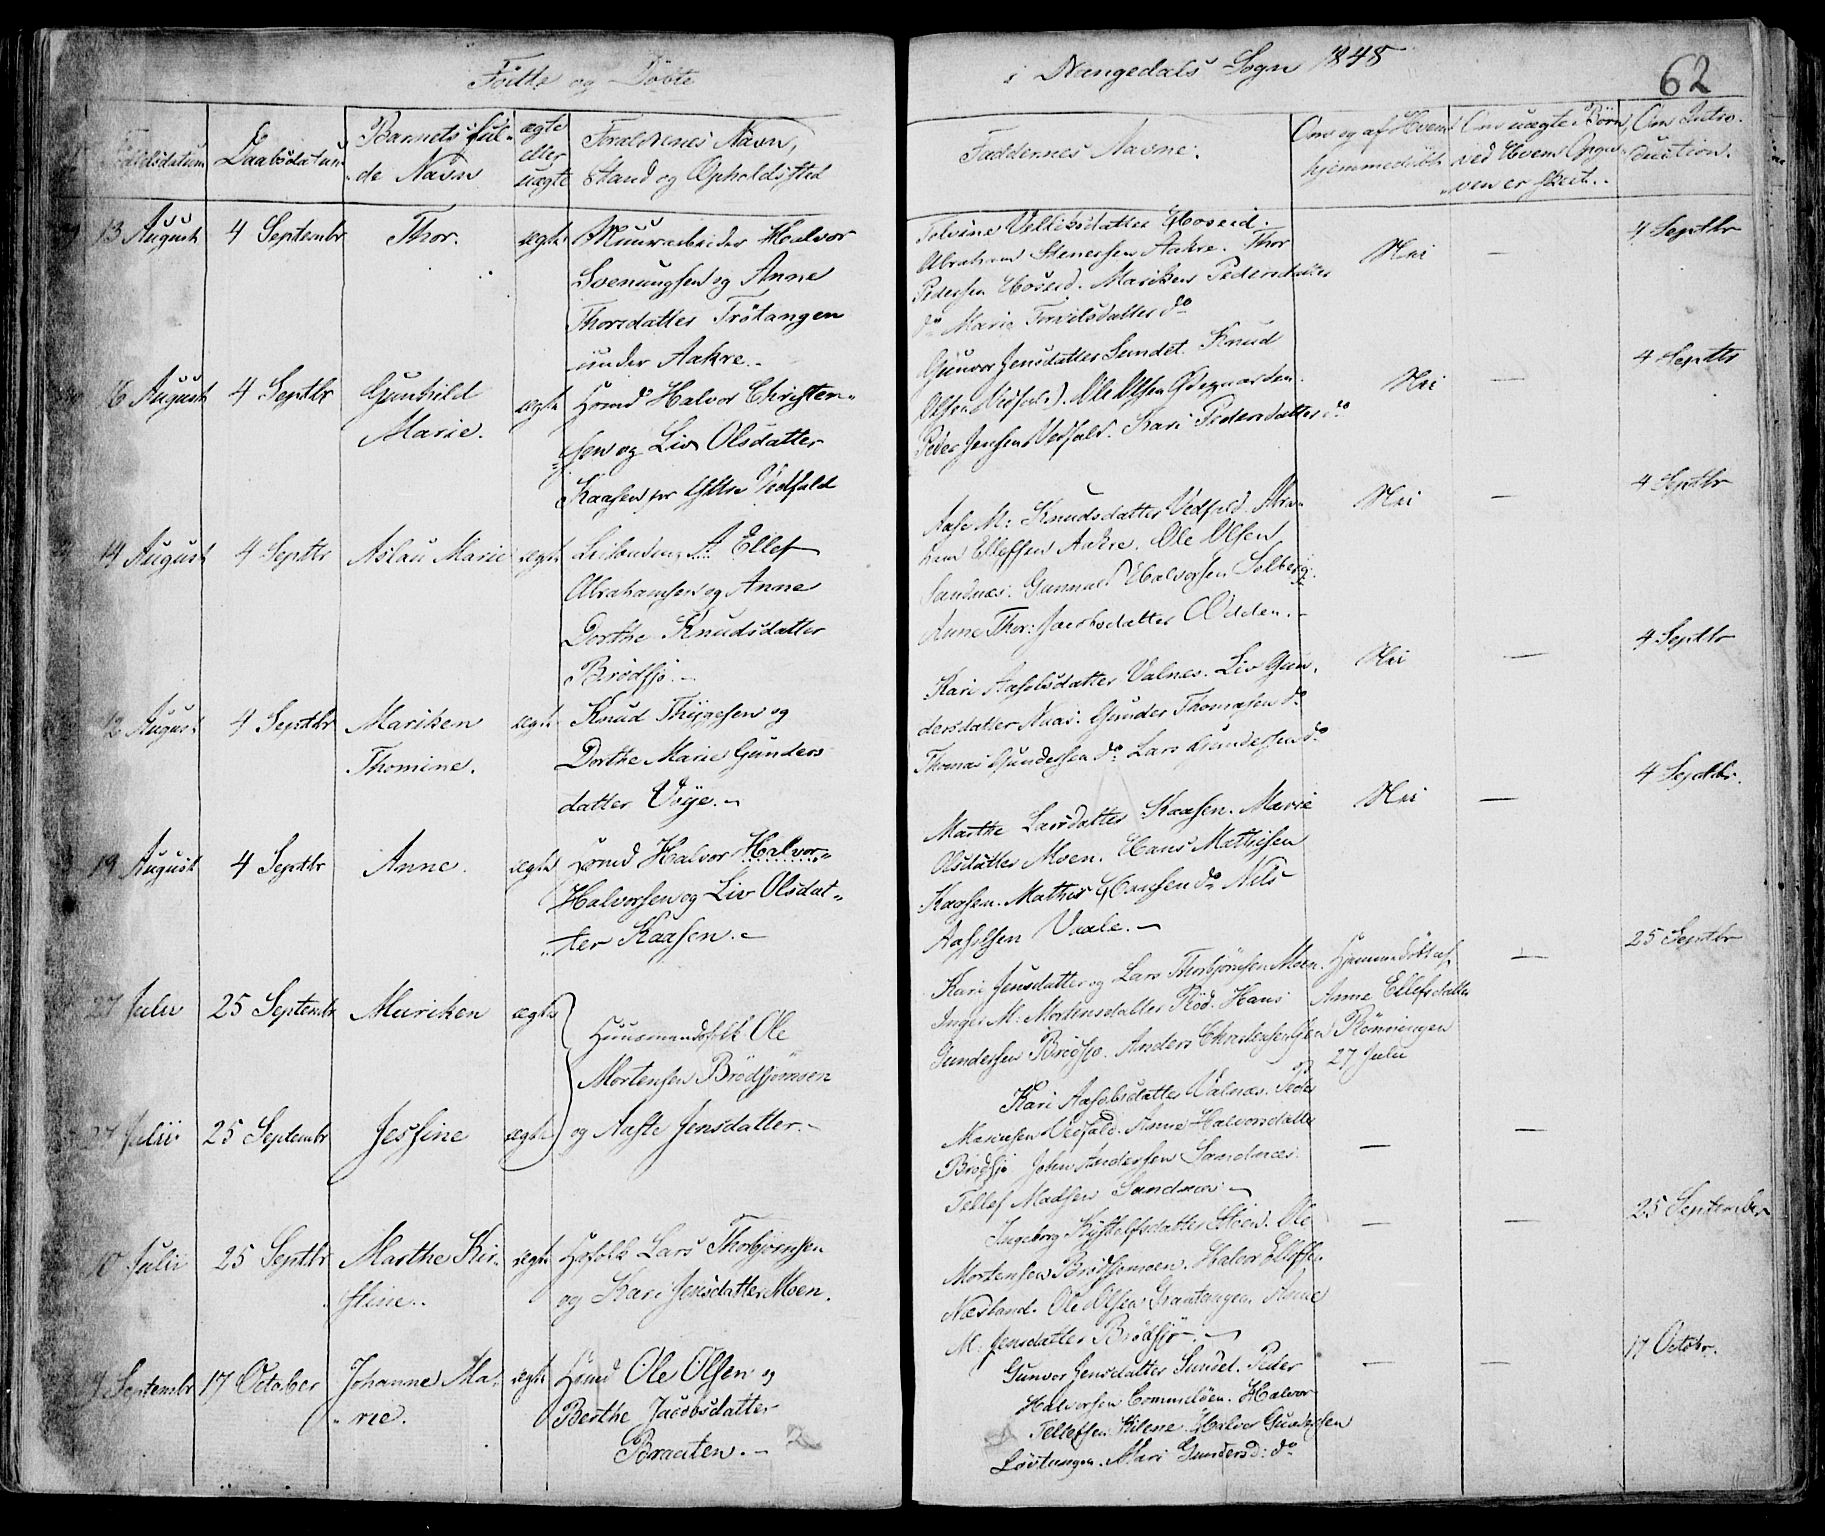 Födte og Döbte
i Drangedals Sogn 1848
62
Födselsdatum
Daabsdatum
Barnets ful-
de Navn
ægte
eller
uægte
Forældrenes Navn,
Stand og Opholdssted
Faddernes Navne.
Om og af Hvem
hjemmedöbt
Om uægte Börn
ved Hvem Opgi-
ven er skeet.
Om Intro-
duction.
13 August
4 Septembr
Thor.
ægte
Muurarbeider Halvor
Svenungsen og Anne
Thorsdatter Trötangen
under Aakre.
Abraham Stenersen Aakre. Thor
Pedersen Hoseid. Mariken Pedersdatter
do Marie do
Nei
—
4 Septbr
16 August
4 Septbr
Gunhild
Marie.
ægte
Halvor Christen-
sen og Liv Olsdatter
Kaasen Vedfald
Gunvor Jensdatter Sundet. Knud
Olsen Vedfald. Ole Olsen Ödegaarden.
Peder Jensen Vedfald. Kari Pedersdatter do
Nei
—
4 Septbr
14 August
4 Septbr
Aslau Marie
ægte
Ellef
Abrahamsen og Anne
Dorthe Knudsdatter
Brödsjö.
Aase M: Knudsdatter Vedfald. Abra-
ham Ellefsen Aakre. Ole Olsen
Sandnæs. Gunnar Halvorsen Solberg.
Anne Thor: datter Odden.
Nei
—
4 Septbr
12 August
4 Septbr
Mariken
Thomine.
ægte
Knud Thygesen og
Dorthe Marie Gunders
datter Voje.
Kari Aasolsdatter Valnes. Liv Gun-
dersdatter Naas. Gunder Thomasen do
Thomas Gundersen do Lars Gundersen do
Nei
—
4 Septbr
19 August
4 Septbr
Anne.
ægte
Halvor Halvor
Halvorsen og Liv Olsdat-
ter Kaasen.
Marthe Larsdatter Kaasen. Marie
Olsdatter Moen. Hans Mathisen
Kaasen. Mathis Hansen do Nils
Aasolsen Vaale.
Nei
—
4 Septbr.
27 Julii
25 Septembr
Mariken
ægte
Huusmandsfolk Ole
Mortensen Brödsjömoen
Kari Jensdatter og Lars Thorbjörnsen Moen.
Inger M: Mortensdatter Röd. Hans
Gundersen Brödsjö. Anders Christensen
Hjemmedöbt af
Anne Ellefsdatter
Rönningen
27 Julii
—
25 Septbr
27 Julii
25 Septembr
Jessine
ægte
og Aaste Jensdatter.
Kari Aasolsdatter Valnæs. Peder
Vedfald. Anne Halvorsdatter
Brödsjö John Andersen Sandnæs.
Tellef Madsen Sandnæs
—
—
10 Julii
25 Septbr
Marthe Kir-
stine.
ægte
Lars Thorbjörnsen
og Kari Jensdatter Moen.
Ingeborg datter Ole
Mortensen Brödsjömoen. Halvor Ellefsen
Næsland. Ole Olsen Grantangen. Anne
M. Jensdatter Brödsjö.
—
—
25 September
9 Septembr
17 October
Johanne Ma-
rie.
ægte
Ole Olsen og
Berthe Jacobsdatter
Braaten.
Gunvor Jensdatter Sundet. Peder
Halvorsen Halvor
Tellefsen Kilene. Halvor Gundersen
Lövtangen. Mari Gundersd: do
—
—
17 Octobr.